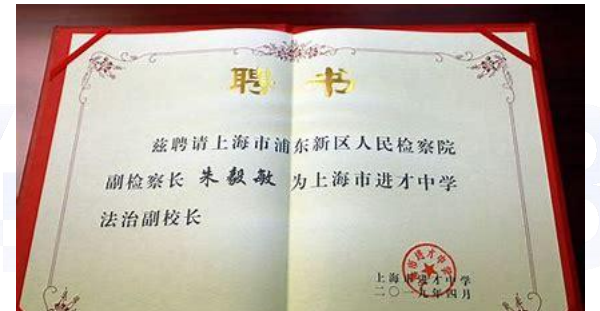 聘书
兹聘请上海市浦东新区人民检察院
副检察长 朱毅敏 为上海市进才中学
法治副校长
上海市进才中学
二〇一九年四月